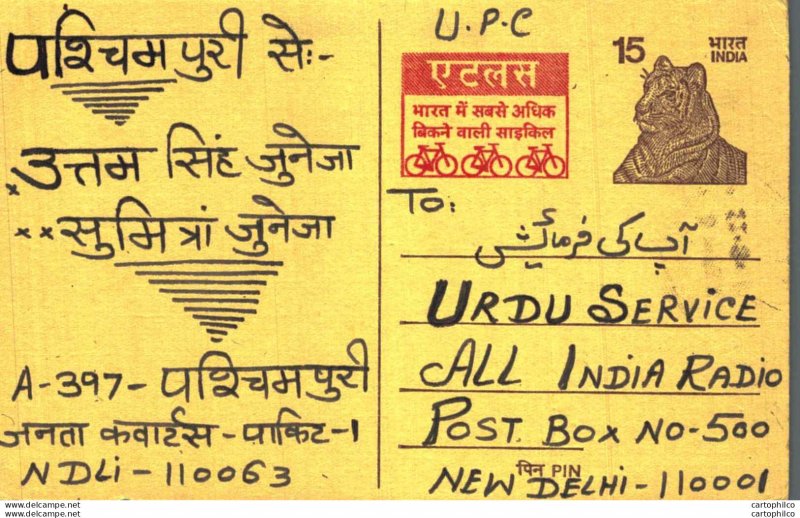 पश्चिम पुरी से:-
उत्तम सिंह जुनेजा
सुमित्रां जुनेजा
A-397-पश्चिम पुरी
जनता क्वार्टस-पाकिट-1
NDLi-110063
U.P.C
एटलस
भारत में सबसे अधिक
बिकने वाली साइकिल
15 भारत
INDIA
To:
آپ کی فرمائش
URDU SERVICE
ALL INDIA RADIO
POST. BOX NO-500
पिन PIN
NEW DELHI-110001
cartophilco
cartophilco